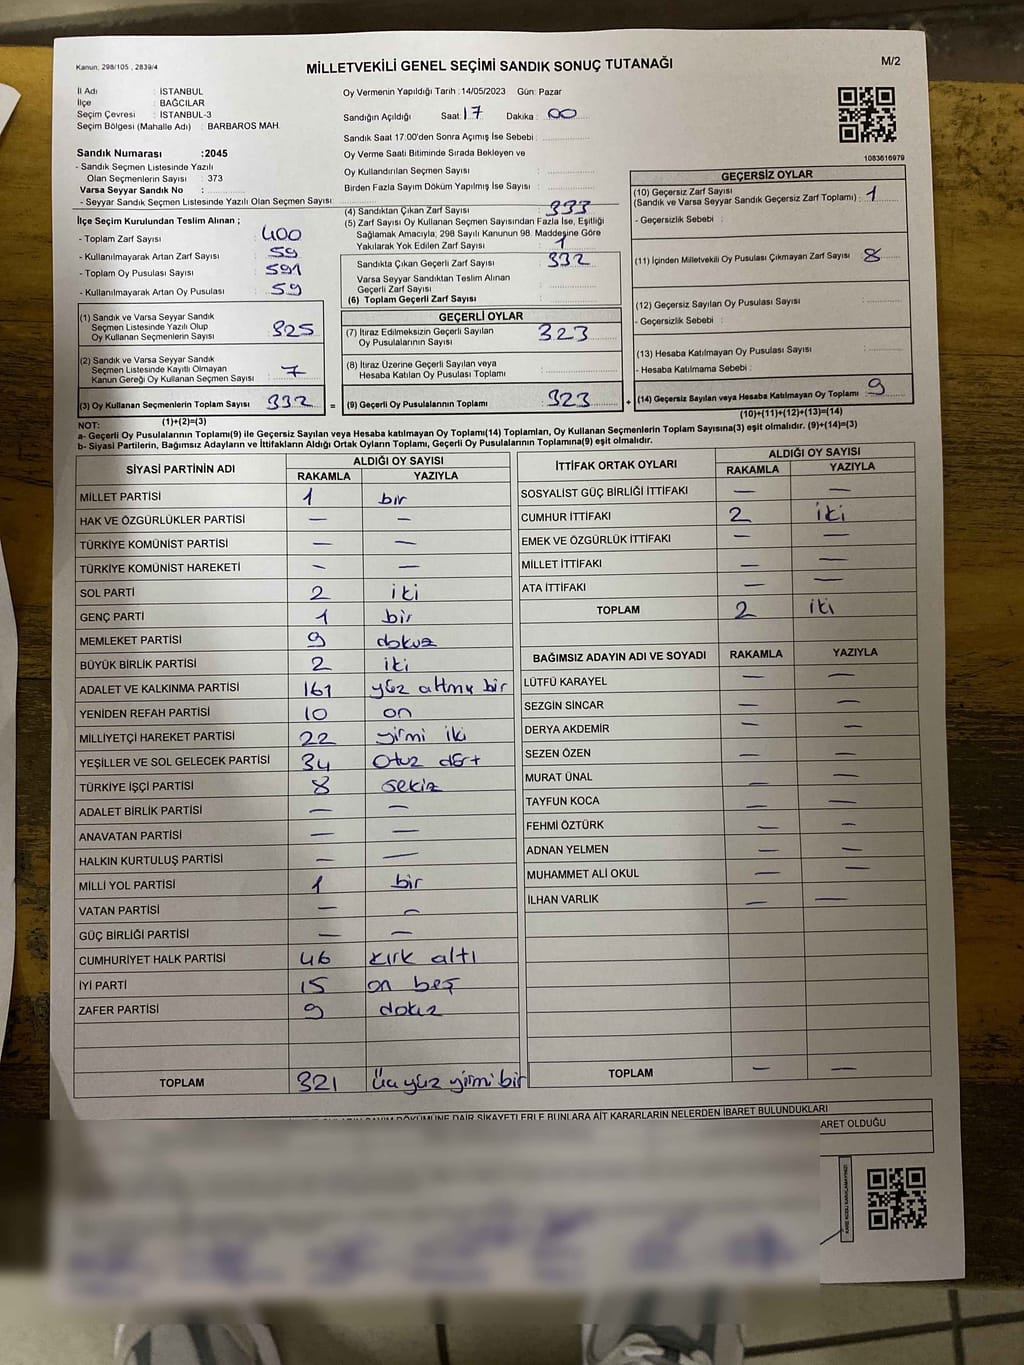 Kanun; 298/105 , 2839/4
MİLLETVEKİLİ GENEL SEÇİMİ SANDIK SONUÇ TUTANAĞI
M/2
İl Adı : İSTANBUL
İlçe : BAĞCILAR
Seçim Çevresi : İSTANBUL-3
Seçim Bölgesi (Mahalle Adı) : BARBAROS MAH.
Oy Vermenin Yapıldığı Tarih :14/05/2023 Gün: Pazar
Sandığın Açıldığı Saat: 17 Dakika : 00
Sandık Saat 17:00'den Sonra Açımış İse Sebebi :
Oy Verme Saati Bitiminde Sırada Bekleyen ve
Oy Kullandırılan Seçmen Sayısı :
Birden Fazla Sayım Döküm Yapılmış İse Sayısı :
1083616979
Sandık Numarası :2045
- Sandık Seçmen Listesinde Yazılı
Olan Seçmenlerin Sayısı : 373
Varsa Seyyar Sandık No :
- Seyyar Sandık Seçmen Listesinde Yazılı Olan Seçmen Sayısı:
İlçe Seçim Kurulundan Teslim Alınan ;
- Toplam Zarf Sayısı : 400
- Kullanılmayarak Artan Zarf Sayısı : 59
- Toplam Oy Pusulası Sayısı : 591
- Kullanılmayarak Artan Oy Pusulası : 59
(1) Sandık ve Varsa Seyyar Sandık
Seçmen Listesinde Yazılı Olup
Oy Kullanan Seçmenlerin Sayısı : 325
(2) Sandık ve Varsa Seyyar Sandık
Seçmen Listesinde Kayıtlı Olmayan
Kanun Gereği Oy Kullanan Seçmen Sayısı : 7
(3) Oy Kullanan Seçmenlerin Toplam Sayısı : 332 =
(1)+(2)=(3)
(4) Sandıktan Çıkan Zarf Sayısı : 333
(5) Zarf Sayısı Oy Kullanan Seçmen Sayısından Fazla İse, Eşitliği
Sağlamak Amacıyla, 298 Sayılı Kanunun 98. Maddesine Göre
Yakılarak Yok Edilen Zarf Sayısı : 1
Sandıkta Çıkan Geçerli Zarf Sayısı : 332
Varsa Seyyar Sandıktan Teslim Alınan
Geçerli Zarf Sayısı :
(6) Toplam Geçerli Zarf Sayısı :
GEÇERLİ OYLAR
(7) İtiraz Edilmeksizin Geçerli Sayılan
Oy Pusulalarının Sayısı : 323
(8) İtiraz Üzerine Geçerli Sayılan veya
Hesaba Katılan Oy Pusulası Toplamı :
(9) Geçerli Oy Pusulalarının Toplamı : 323 +
GEÇERSİZ OYLAR
(10) Geçersiz Zarf Sayısı
(Sandık ve Varsa Seyyar Sandık Geçersiz Zarf Toplamı) : 1
- Geçersizlik Sebebi :
(11) İçinden Milletvekili Oy Pusulası Çıkmayan Zarf Sayısı : 8
(12) Geçersiz Sayılan Oy Pusulası Sayısı :
- Geçersizlik Sebebi :
(13) Hesaba Katılmayan Oy Pusulası Sayısı :
- Hesaba Katılmama Sebebi :
(14) Geçersiz Sayılan veya Hesaba Katılmayan Oy Toplamı : 9
(10)+(11)+(12)+(13)=(14)
NOT:
a- Geçerli Oy Pusulalarının Toplamı(9) ile Geçersiz Sayılan veya Hesaba Katılmayan Oy Toplamı(14) Toplamları, Oy Kullanan Seçmenlerin Toplam Sayısına(3) eşit olmalıdır. (9)+(14)=(3)
b- Siyasi Partilerin, Bağımsız Adayların ve İttifakların Aldığı Ortak Oyların Toplamı, Geçerli Oy Pusulalarının Toplamına(9) eşit olmalıdır.
SİYASİ PARTİNİN ADI ALDIĞI OY SAYISI
RAKAMLA YAZIYLA
MİLLET PARTİSİ 1 bir
HAK VE ÖZGÜRLÜKLER PARTİSİ — —
TÜRKİYE KOMÜNİST PARTİSİ — —
TÜRKİYE KOMÜNİST HAREKETİ — —
SOL PARTİ 2 iki
GENÇ PARTİ 1 bir
MEMLEKET PARTİSİ 9 dokuz
BÜYÜK BİRLİK PARTİSİ 2 iki
ADALET VE KALKINMA PARTİSİ 161 yüz altmış bir
YENİDEN REFAH PARTİSİ 10 on
MİLLİYETÇİ HAREKET PARTİSİ 22 yirmi iki
YEŞİLLER VE SOL GELECEK PARTİSİ 34 Otuz dört
TÜRKİYE İŞÇİ PARTİSİ 8 sekiz
ADALET BİRLİK PARTİSİ — —
ANAVATAN PARTİSİ — —
HALKIN KURTULUŞ PARTİSİ — —
MİLLİ YOL PARTİSİ 1 bir
VATAN PARTİSİ — —
GÜÇ BİRLİĞİ PARTİSİ — —
CUMHURİYET HALK PARTİSİ 46 kırk altı
İYİ PARTİ 15 on beş
ZAFER PARTİSİ 9 dokuz
TOPLAM 321 Üç yüz yirmi bir
İTTİFAK ORTAK OYLARI ALDIĞI OY SAYISI
RAKAMLA YAZIYLA
SOSYALİST GÜÇ BİRLİĞİ İTTİFAKI — —
CUMHUR İTTİFAKI 2 iki
EMEK VE ÖZGÜRLÜK İTTİFAKI — —
MİLLET İTTİFAKI — —
ATA İTTİFAKI — —
TOPLAM 2 iki
BAĞIMSIZ ADAYIN ADI VE SOYADI RAKAMLA YAZIYLA
LÜTFÜ KARAYEL — —
SEZGİN SİNCAR — —
DERYA AKDEMİR — —
SEZEN ÖZEN — —
MURAT ÜNAL — —
TAYFUN KOCA — —
FEHMİ ÖZTÜRK — —
ADNAN YELMEN — —
MUHAMMET ALİ OKUL — —
İLHAN VARLIK — —
TOPLAM — —
DÖKÜMÜNE DAİR ŞİKAYETLERLE BUNLARA AİT KARARLARIN NELERDEN İBARET BULUNDUKLARI
ARET OLDUĞU